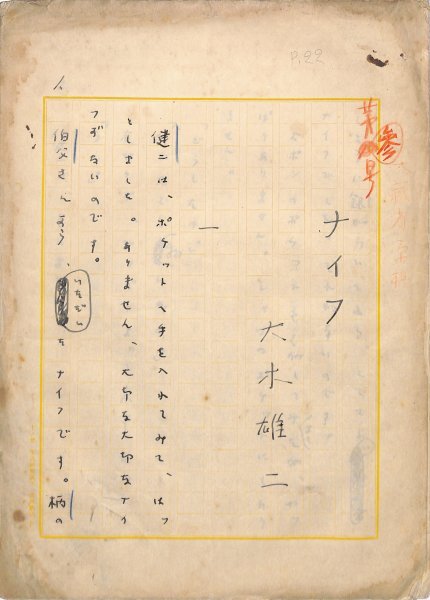 P.22
参
第 号
ナイフ
大木雄二
一
健二は、ポケットへ手を入れてみて、はっ
としました。ありません、大切な大切なナイ
フがないのです。
伯父さんから、いただいたナイフです。柄の